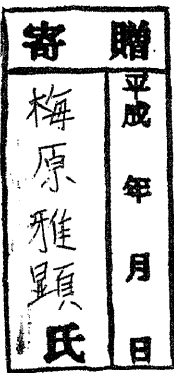 寄贈
平成 年 月 日
梅原雅顕氏